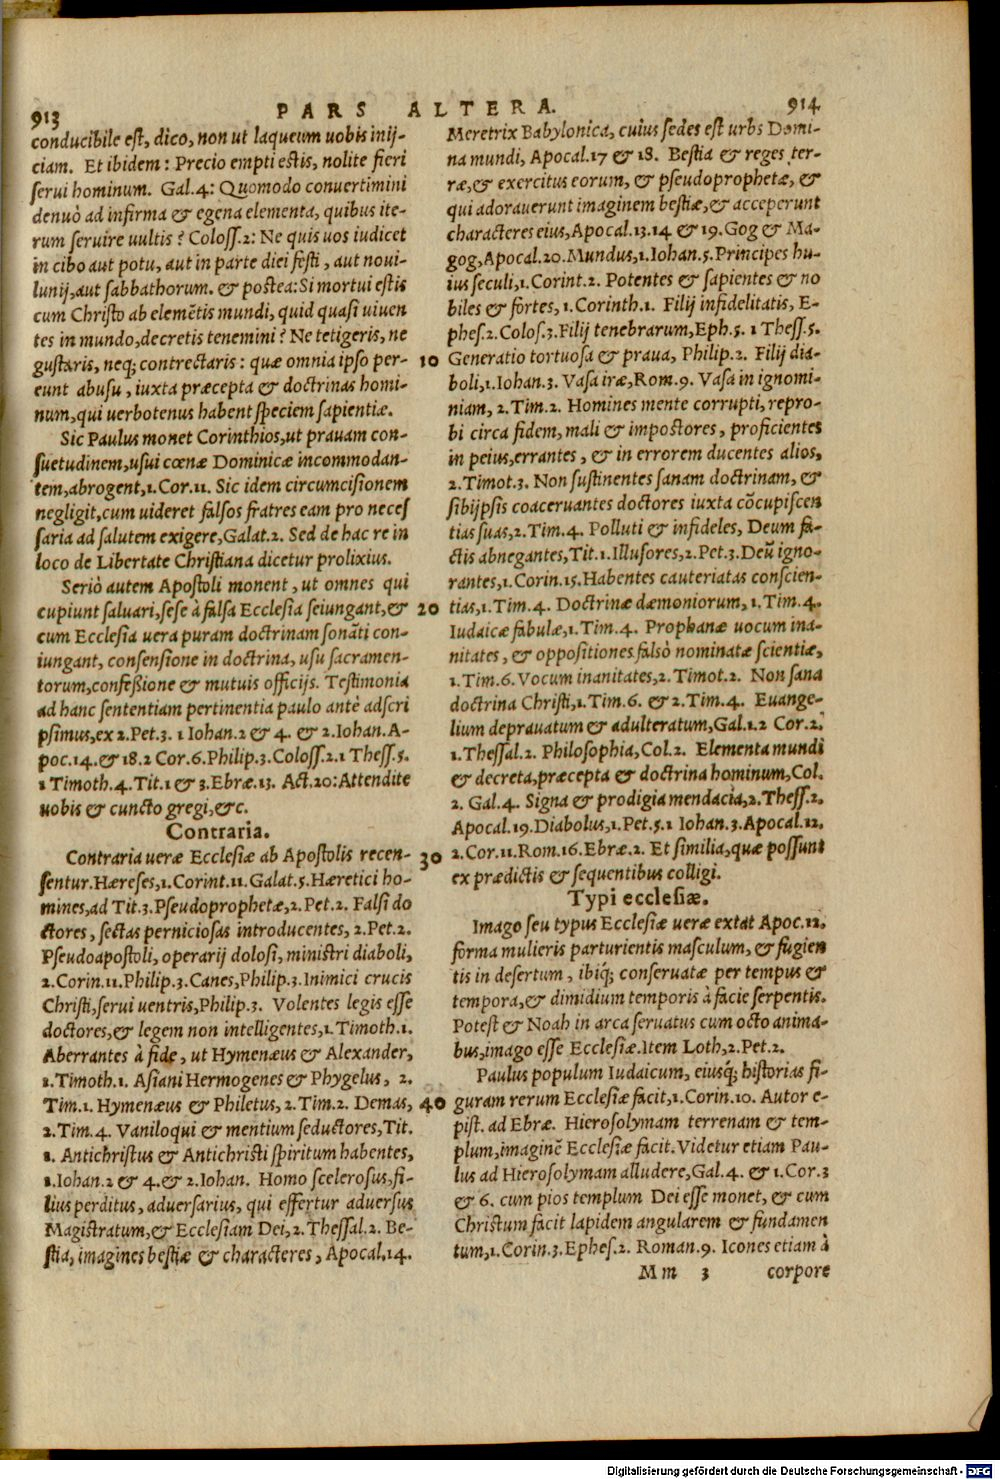 913
PARS ALTERA.
914
conducibile est, dico, non ut laqueum uobis inij-
ciam. Et ibidem: Precio empti estis, nolite fieri
serui hominum. Gal.4: Quomodo conuertimini
denuò ad infirma & egena elementa, quibus ite-
rum seruire uultis? Coloss.2: Ne quis uos iudicet
in cibo aut potu, aut in parte diei festi, aut noui-
lunij, aut sabbathorum. & postea: Si mortui estis
cum Christo ab elemẽtis mundi, quid quasi uiuen
tes in mundo, decretis tenemini? Ne tetigeris, ne
gustaris, neq; contrectaris: quæ omnia ipso per-
eunt abusu, iuxta præcepta & doctrinas homi-
num, qui uerbotenus habent speciem sapientiæ.
Sic Paulus monet Corinthios, ut prauam con-
suetudinem, usui cœnæ Dominicæ incommodan-
tem, abrogent, 1.Cor.11. Sic idem circumcisionem
negligit, cum uideret falsos fratres eam pro neces
saria ad salutem exigere, Galat.2. Sed de hac re in
loco de Libertate Christiana dicetur prolixius.
Seriò autem Apostoli monent, ut omnes qui
cupiunt saluari, sese à falsa Ecclesia seiungant, &
cum Ecclesia uera puram doctrinam sonãti con-
iungant, consensione in doctrina, usu sacramen-
torum, confeßione & mutuis officijs. Testimonia
ad hanc sententiam pertinentia paulo antè adscri
psimus, ex 2.Pet.3. 1 Iohan.2 & 4. & 2.Iohan. A-
poc.14. & 18.2 Cor.6. Philip.3. Coloss.2.1 Thess.5.
1 Timoth.4. Tit.1 & 3. Ebræ.13. Act.20: Attendite
uobis & cuncto gregi, &c.
Contraria.
Contraria ueræ Ecclesiæ ab Apostolis recen-
sentur. Hæreses, 1.Corint.11. Galat.5. Hæretici ho-
mines, ad Tit.3. Pseudoprophetæ, 2.Pet.2. Falsi do
ctores, sectas perniciosas introducentes, 2.Pet.2.
Pseudoapostoli, operarij dolosi, ministri diaboli,
2.Corin.11. Philip.3. Canes, Philip.3. Inimici crucis
Christi, serui uentris, Philip.3. Volentes legis esse
doctores, & legem non intelligentes, 1.Timoth.1.
Aberrantes à fide, ut Hymenæus & Alexander,
1.Timoth.1. Asiani Hermogenes & Phygelus, 2.
Tim.1. Hymenæus & Philetus, 2.Tim.2. Demas,
2.Tim.4. Vaniloqui & mentium seductores, Tit.
1. Antichristus & Antichristi spiritum habentes,
1.Iohan.2 & 4. & 2.Iohan. Homo scelerosus, fi-
lius perditus, aduersarius, qui effertur aduersus
Magistratum, & Ecclesiam Dei, 2.Thessal.2. Be-
stia, imagines bestiæ & characteres, Apocal.14.
10
20
30
40
Meretrix Babylonica, cuius sedes est urbs Domi-
na mundi, Apocal.17 & 18. Bestia & reges ter-
ræ, & exercitus eorum, & pseudoprophetæ, &
qui adorauerunt imaginem bestiæ, & acceperunt
characteres eius, Apocal.13.14 & 19. Gog & Ma-
gog, Apocal.20. Mundus, 1.Iohan.5. Principes hu-
ius seculi, 1.Corint.2. Potentes & sapientes & no
biles & fortes, 1.Corinth.1. Filij infidelitatis, E-
phes.2. Colos.3. Filij tenebrarum, Eph.5. 1 Thess.5.
Generatio tortuosa & praua, Philip.2. Filij dia-
boli, 1.Iohan.3. Vasa iræ, Rom.9. Vasa in ignomi-
niam, 2.Tim.2. Homines mente corrupti, repro-
bi circa fidem, mali & impostores, proficientes
in peius, errantes, & in errorem ducentes alios,
2.Timot.3. Non sustinentes sanam doctrinam, &
sibijpsis coaceruantes doctores iuxta cõcupiscen
tias suas, 2.Tim.4. Polluti & infideles, Deum fa-
ctis abnegantes, Tit.1. Illusores, 2.Pet.3. Deũ igno-
rantes, 1.Corin.15. Habentes cauteriatas conscien-
tias, 1.Tim.4. Doctrinæ dæmoniorum, 1.Tim.4.
Iudaicæ fabulæ, 1.Tim.4. Prophanæ uocum ina-
nitates, & oppositiones falsò nominatæ scientiæ,
1.Tim.6. Vocum inanitates, 2.Timot.2. Non sana
doctrina Christi, 1.Tim.6. & 2.Tim.4. Euange-
lium deprauatum & adulteratum, Gal.1.2 Cor.2.
1.Thessal.2. Philosophia, Col.2. Elementa mundi
& decreta, præcepta & doctrina hominum, Col.
2. Gal.4. Signa & prodigia mendacia, 2.Thess.2.
Apocal.19. Diabolus, 1.Pet.5.1 Iohan.3. Apocal.12.
2.Cor.11. Rom.16. Ebræ.2. Et similia, quæ possunt
ex prædictis & sequentibus colligi.
Typi ecclesiæ.
Imago seu typus Ecclesiæ ueræ extat Apoc.12.
forma mulieris parturientis masculum, & fugien
tis in desertum, ibiq́; conseruatæ per tempus &
tempora, & dimidium temporis à facie serpentis.
Potest & Noah in arca seruatus cum octo anima-
bus, imago esse Ecclesiæ. Item Loth, 2.Pet.2.
Paulus populum Iudaicum, eiusq́; historias fi-
guram rerum Ecclesiæ facit, 1.Corin.10. Autor e-
pist. ad Ebræ. Hierosolymam terrenam & tem-
plum, imaginẽ Ecclesiæ facit. Videtur etiam Pau-
lus ad Hierosolymam alludere, Gal.4. & 1.Cor.3
& 6. cum pios templum Dei esse monet, & cum
Christum facit lapidem angularem & fundamen
tum, 1.Corin.3. Ephes.2. Roman.9. Icones etiam à
Mm 3 corpore
Digitalisierung gefördert durch die Deutsche Forschungsgemeinschaft - DFG